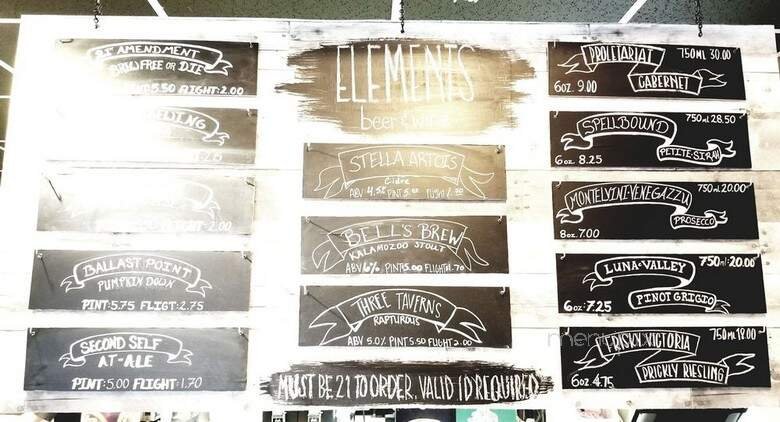 21ST AMENDMENT
BREW FREE OR DIE
PINT: 5.50 FLIGHT: 2.00
2.00
BALLAST POINT
PUMPKIN DOWN
PINT: 5.75 FLIGT: 2.75
SECOND SELF
AT-ALE
PINT: 5.00 FLIGHT: 1.70
ELEMENTS
beer & wine
STELLA ARTOIS
Cidre
ABV 4.5%
BELL'S BREW
KALAMOZOO STOUT
ABV 6% PINT 5.00 FLIGHT 1.70
THREE TAVERNS
RAPTUROUS
ABV 5.0% PINT 5.50 FLIGHT 2.00
MUST BE 21 TO ORDER. VALID ID REQUIRED
PROLETARIAT 750ML 30.00
6oz. 9.00 CABERNET
SPELLBOUND 750ML 28.50
6oz 8.25 PETITE-SIRAH
MONTELVINI-VENEGAZZU 750ML 20.00
8oz 7.00 PROSECCO
LUNA VALLEY 750ML 20.00
6oz 7.25 PINOT GRIGIO
RISKY VICTORIA 750ML 18.00
6oz 4.75 PRICKLY RIESLING